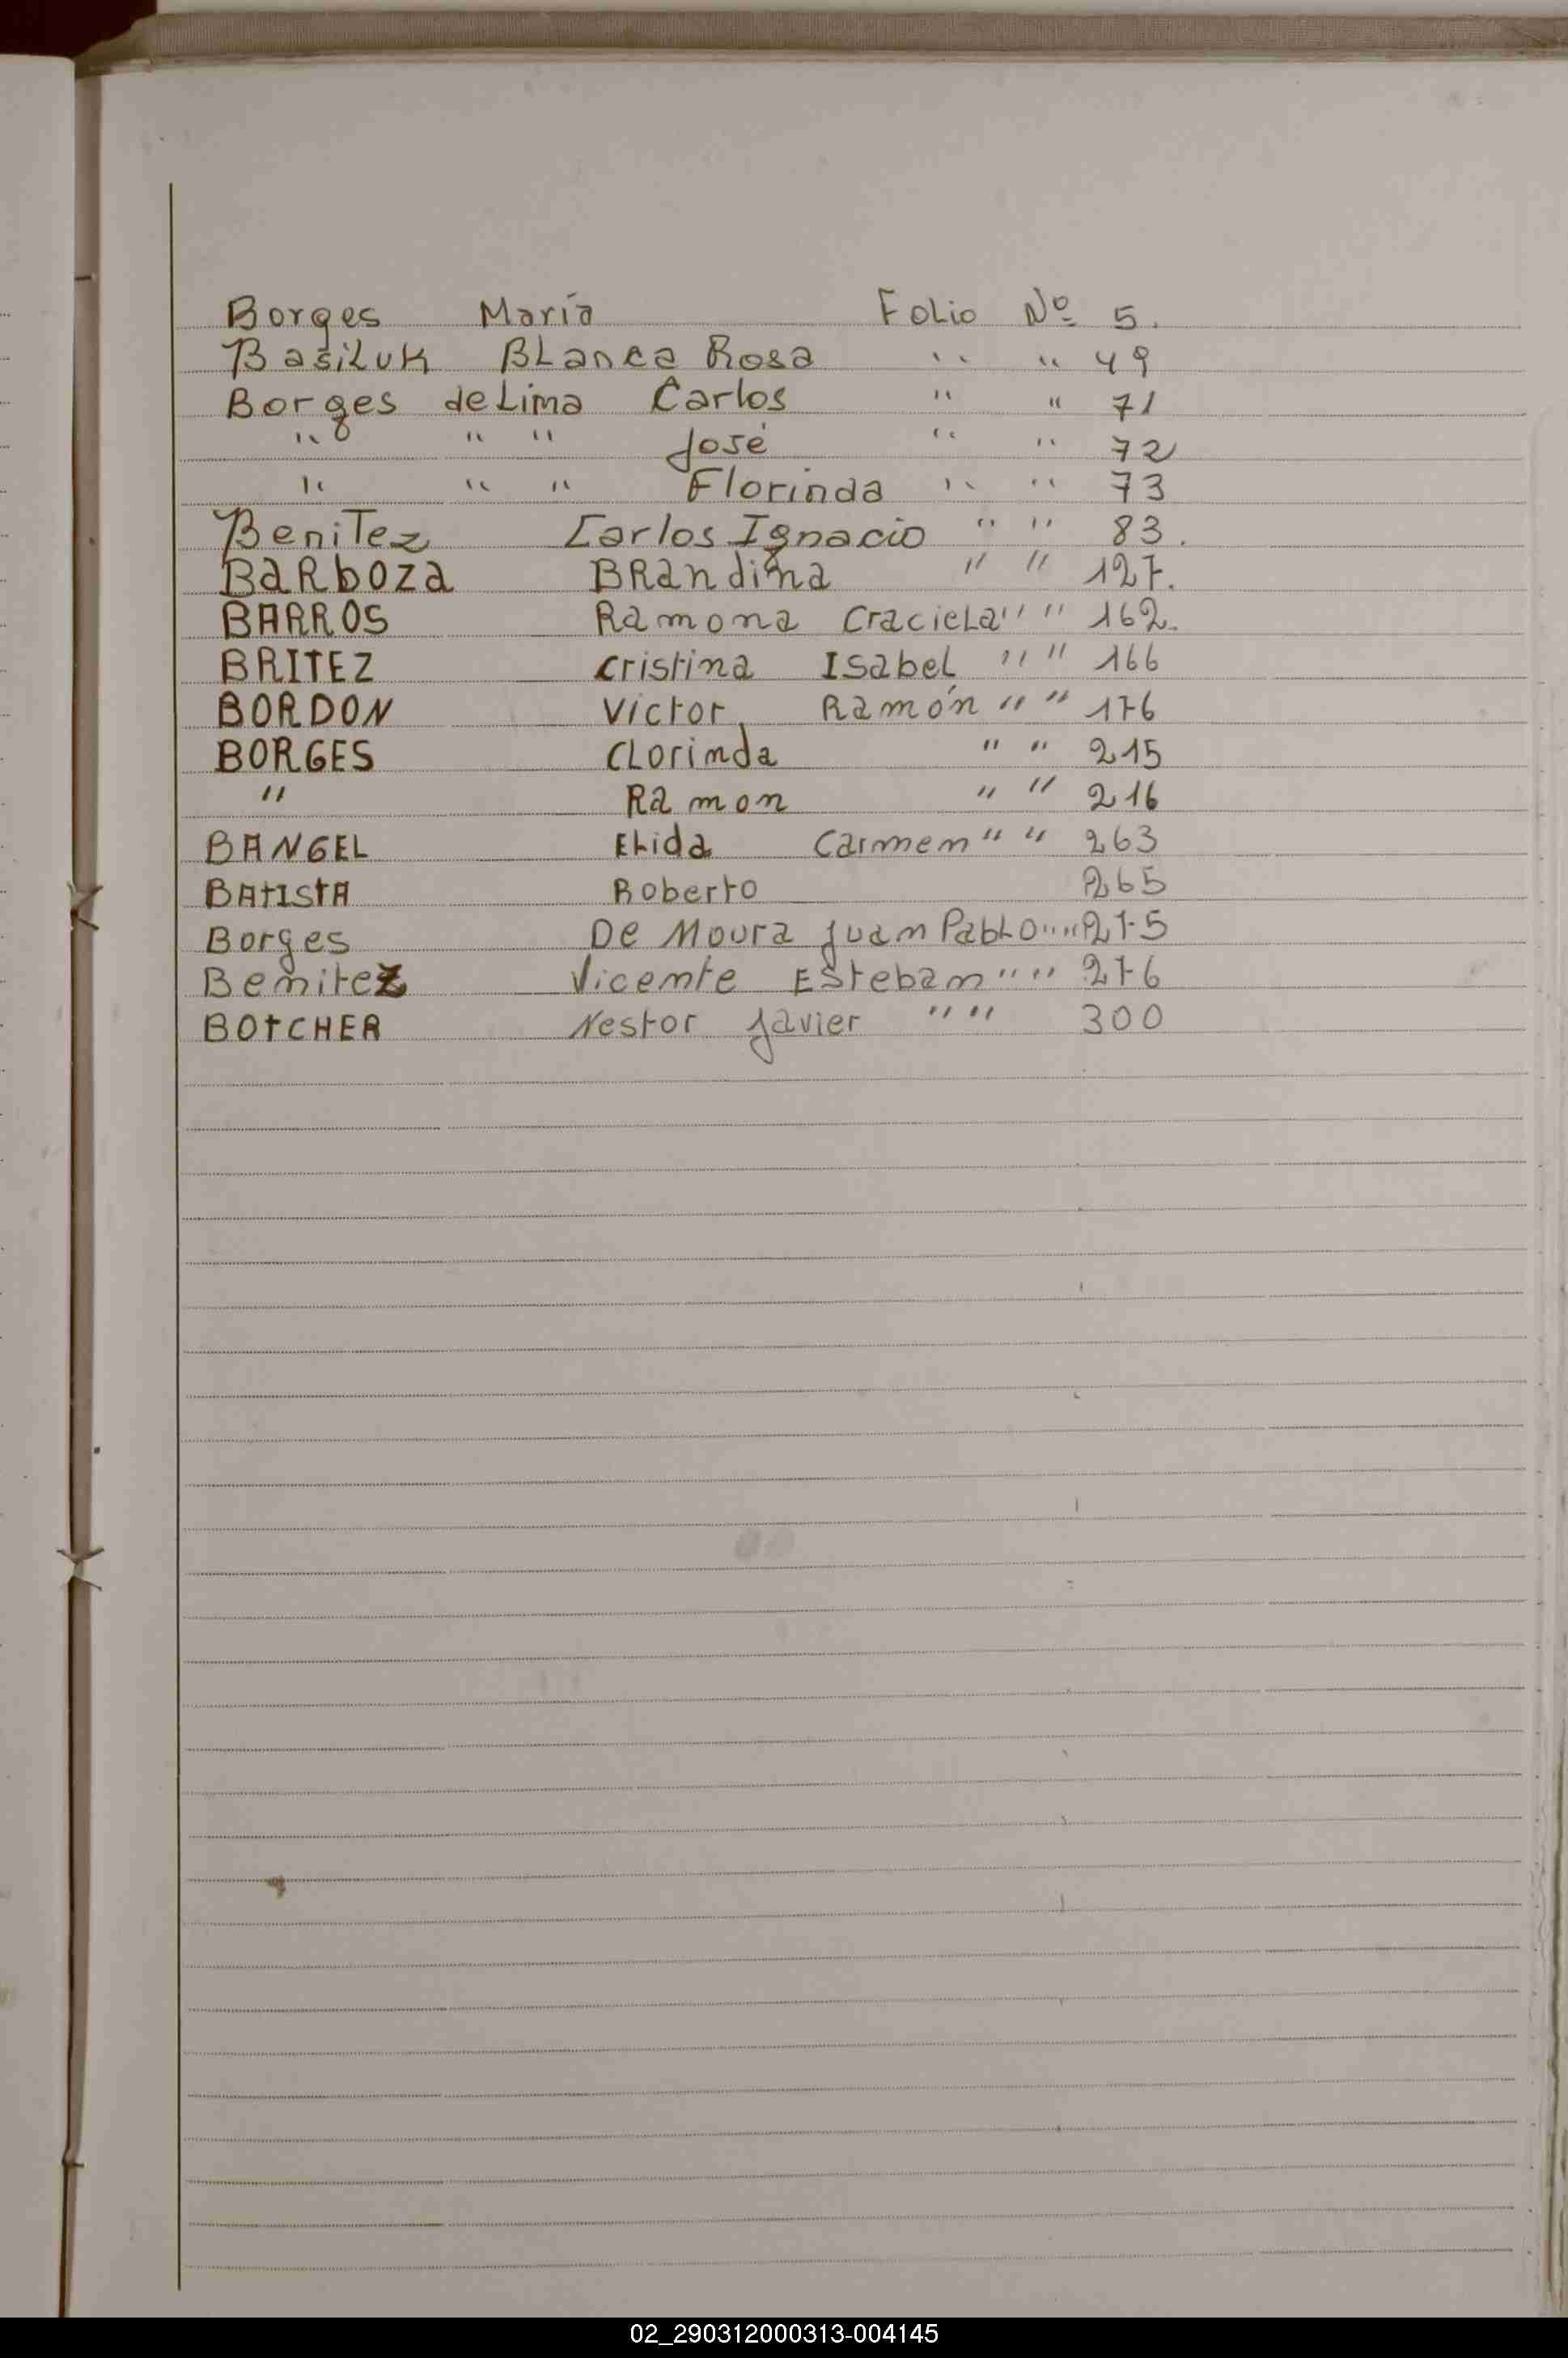 Borges María Folio Nº 5.
Basiluk Blanca Rosa " " 49
Borges de Lima Carlos " " 71
" " " José " " 72
" " " Florinda " " 73
Benitez Carlos Ignacio " " 83.
Barboza Brandina " " 127.
BARROS Ramona Craciela " " 162.
BRITEZ Cristina Isabel " " 166
BORDON Victor, Ramón " " 176
BORGES Clorinda " " 215
" Ramon " " 216
BANGEL Elida Carmen " " 263
BAtIStA Roberto 265
Borges De Moura Juan Pablo " " 275
Benitez Vicente Esteban " " 276
BOtCHER Nestor Javier " " 300
02_290312000313-004145